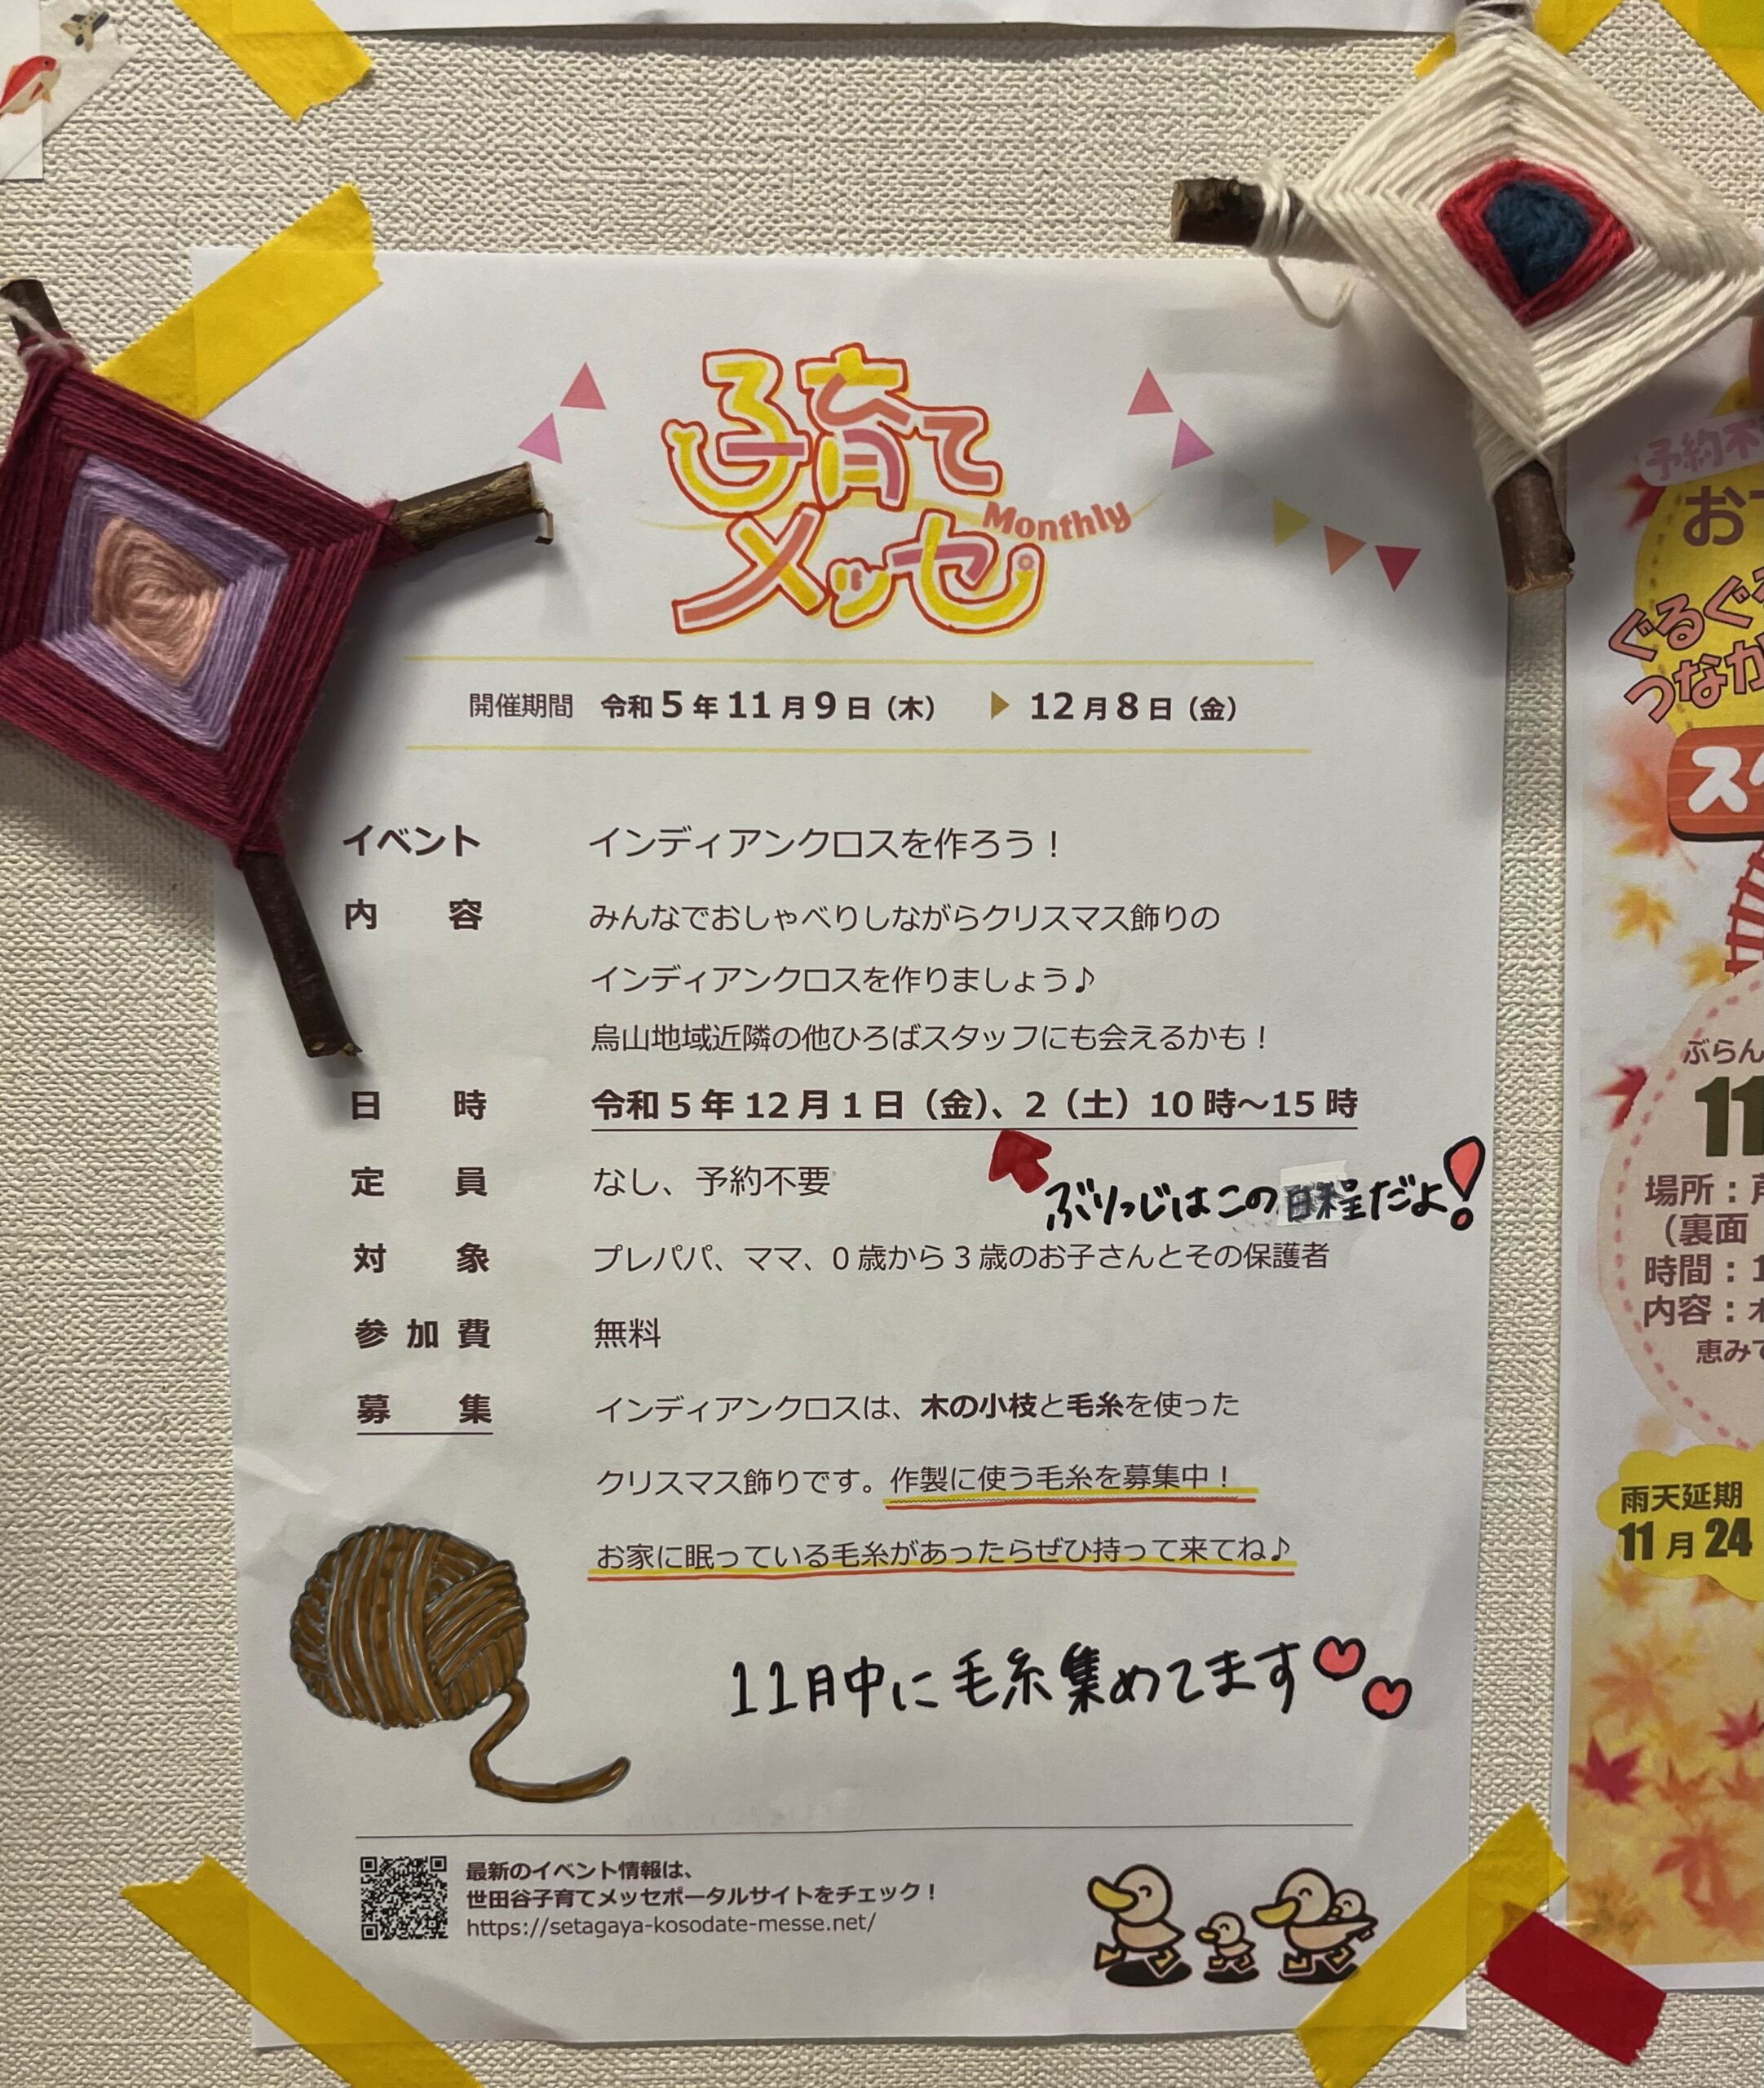 子育て
メッセ
Monthly
開催期間 令和5年11月9日（木） ▶ 12月8日（金）
イベント インディアンクロスを作ろう！
内容 みんなでおしゃべりしながらクリスマス飾りの
インディアンクロスを作りましょう♪
烏山地域近隣の他ひろばスタッフにも会えるかも！
日時 令和5年12月1日（金）、2（土）10時～15時
ぶりっじはこの日程だよ！
定員 なし、予約不要
対象 プレパパ、ママ、0歳から3歳のお子さんとその保護者
参加費 無料
募集 インディアンクロスは、木の小枝と毛糸を使った
クリスマス飾りです。作製に使う毛糸を募集中！
お家に眠っている毛糸があったらぜひ持って来てね♪
11月中に毛糸集めてます
最新のイベント情報は、
世田谷子育てメッセポータルサイトをチェック！
https://setagaya-kosodate-messe.net/
予約不
お
ぐるぐる
つなが
ス
ぶらん
11
場所：
（裏面
時間：1
内容：木
恵みで
雨天延期
11月24